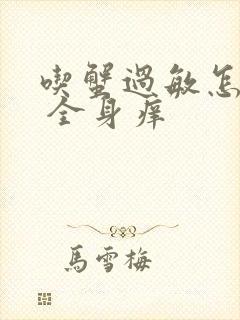 喫蟹過敏怎
全身痒
馬雪梅